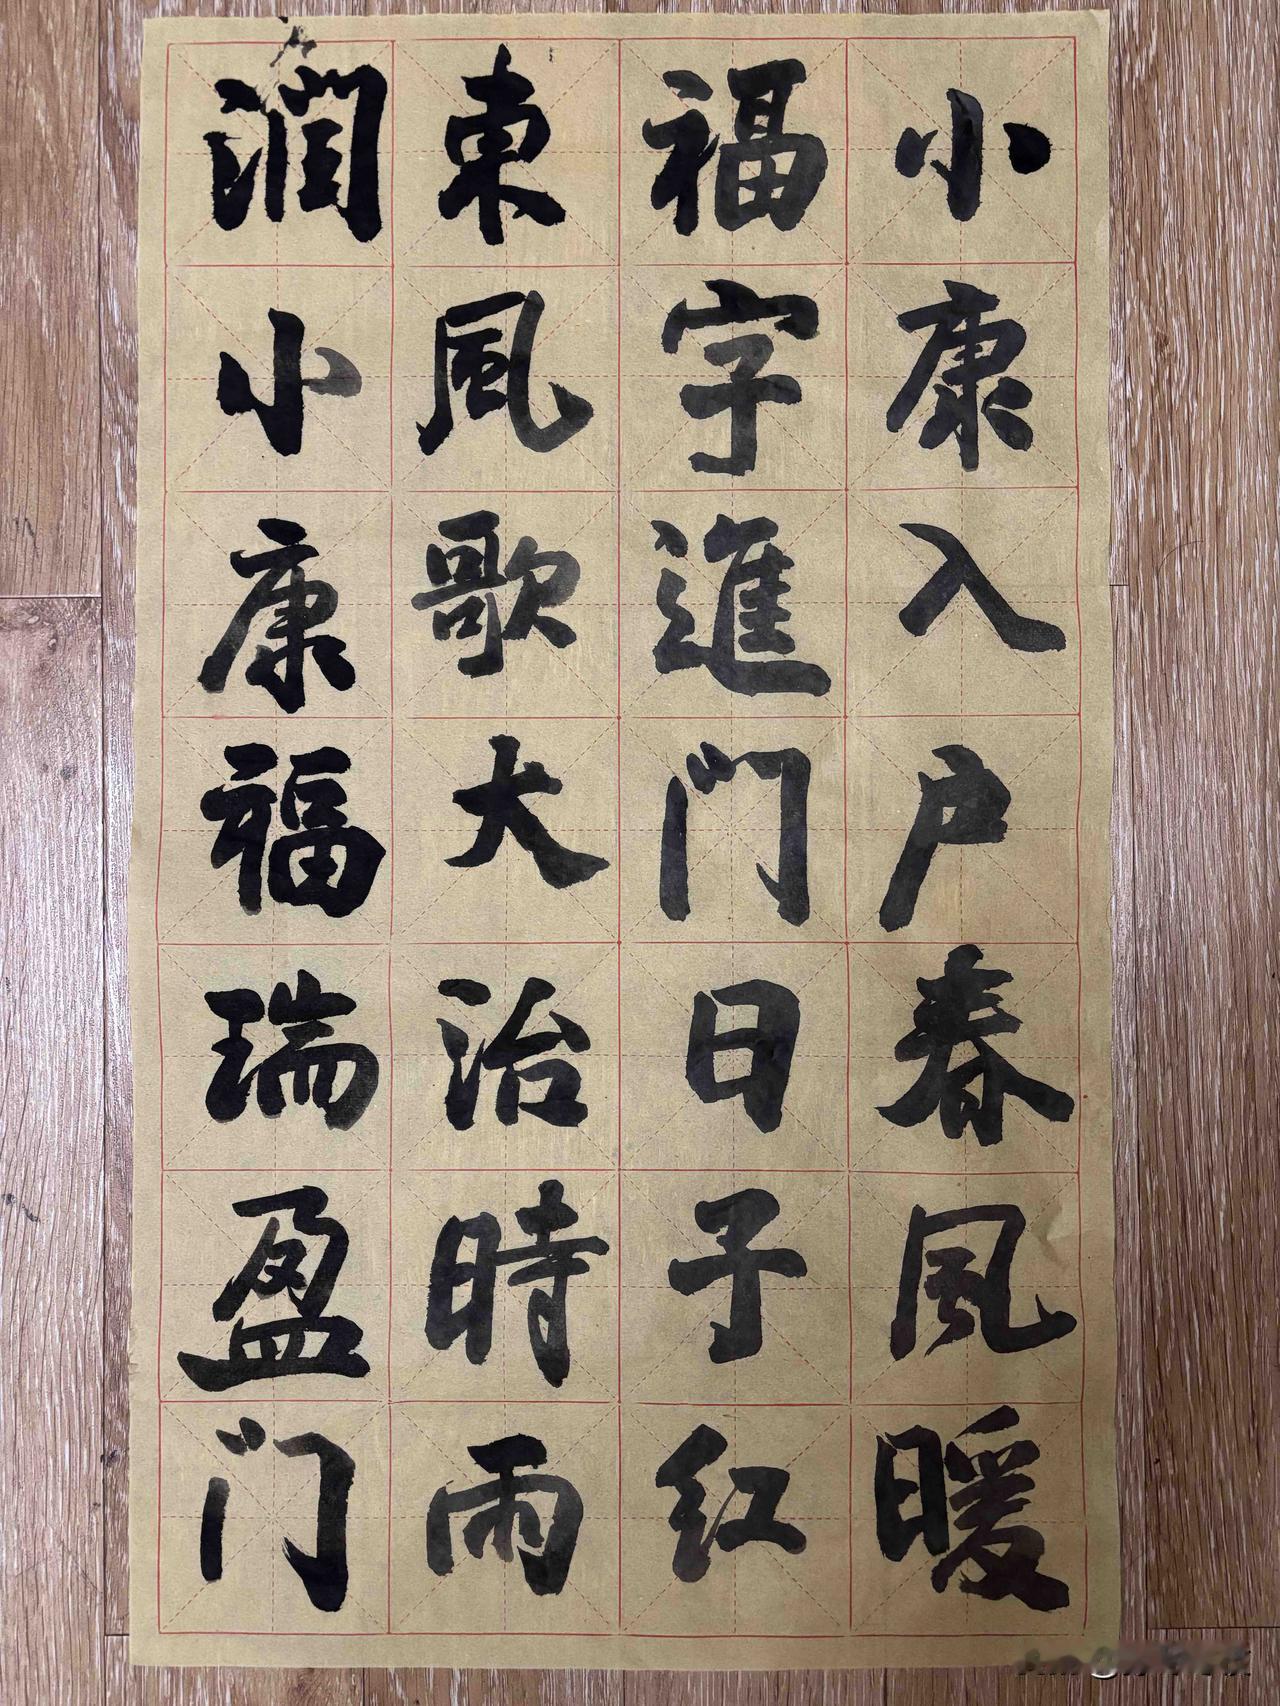 小康入户春风暖
福字進门日子红
東風歌大治時雨
润小康福瑞盈门